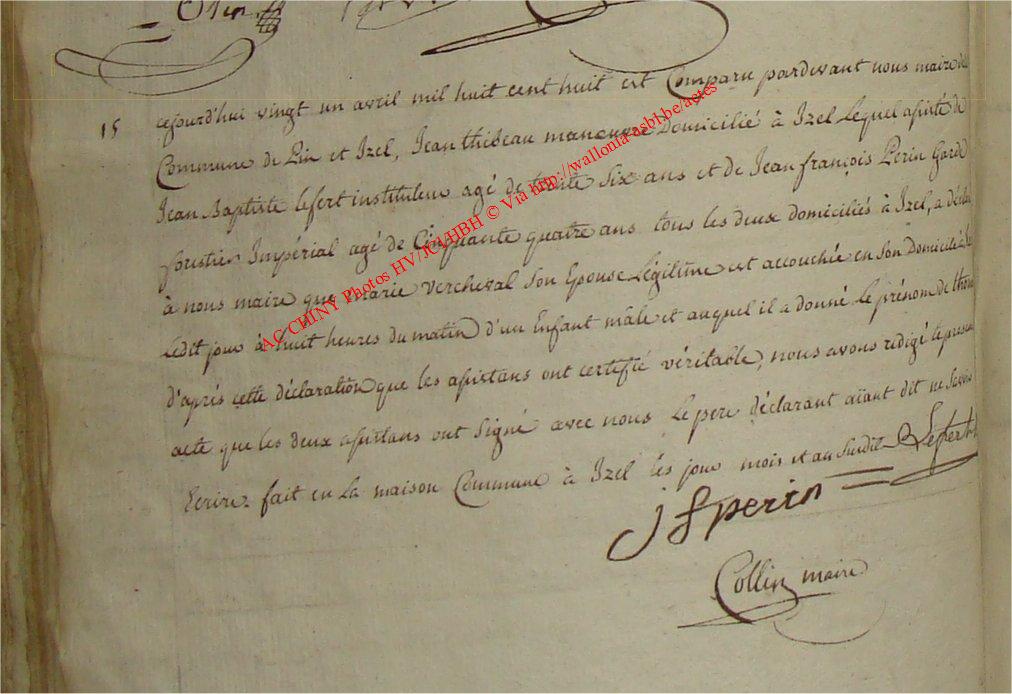 15 cejourd'hui vingt un avril mil huit cent huit est Comparu pardevant nous maire de
Commune de Pin et Izel, Jean thibeau manouvre Domicilié à Izel Lequel assisté de
Jean Baptiste lefert instituteur agé de trente Six ans et de Jean françois Perin Garde
forestier Impérial agé de Cinquante quatre ans tous les deux domiciliés à Izel, a déclaré
à nous maire que marie vercheval Son Epouse Légitime est accouchée en Son Domicile
Ledit jour à huit heures du matin d'un Enfant mâle et auquel il a donné Le prénom de
d'après cette déclaration que les assistans ont certifié véritable, nous avons redigé le present
acte que les deux assistans ont Signé avec nous Le pere déclarant aïant dit ne Savoir
Ecrire. fait en La maison Commune à Izel les jour mois et an Susdit Lefert
JFperin
Collin maire
AC CHINY Photos HV/JCA/HBH © Via http://wallonia-asbl.be/actes